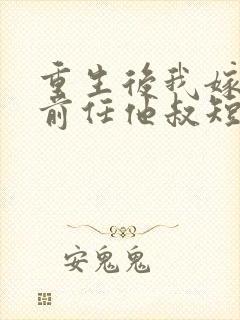 重生後我嫁
前任他叔短
安鬼鬼